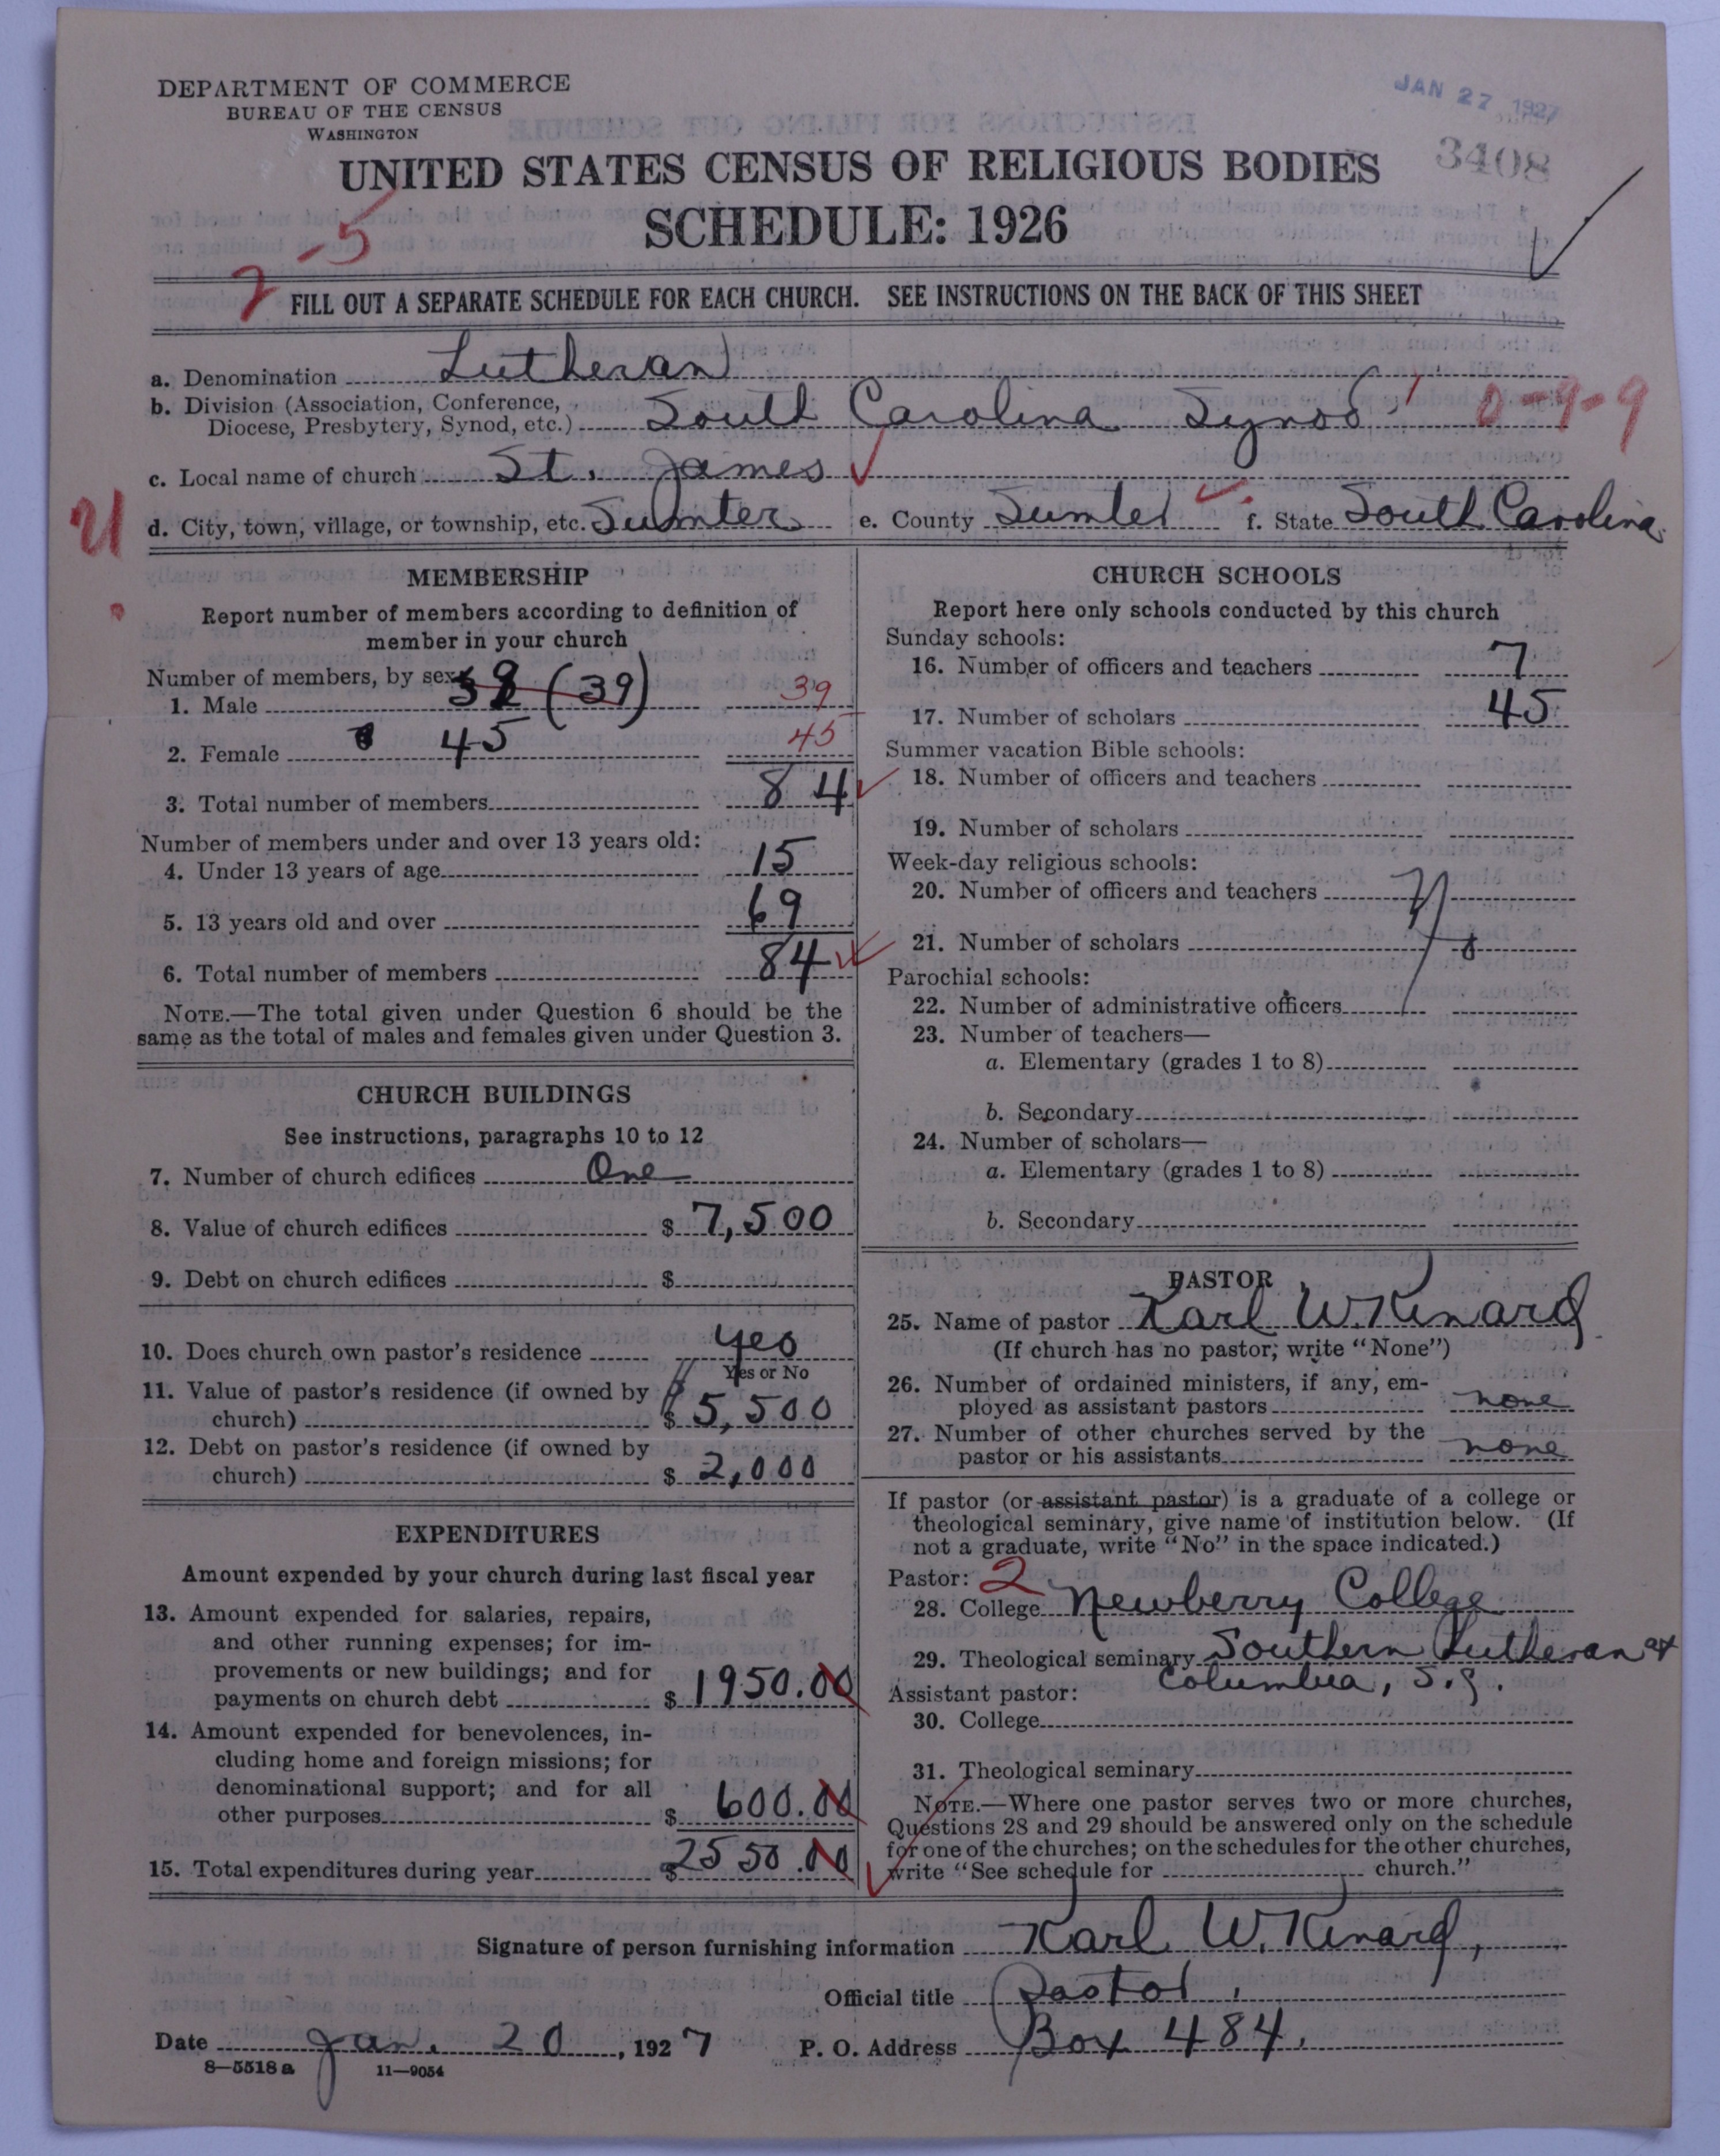 DEPARTMENT OF COMMERCE
BUREAU OF THE CENSUS
WASHINGTON
JAN 27 1927
3408
UNITED STATES CENSUS OF RELIGIOUS BODIES
SCHEDULE: 1926
2-5
FILL OUT A SEPARATE SCHEDULE FOR EACH CHURCH. SEE INSTRUCTIONS ON THE BACK OF THIS SHEET
a. Denomination Lutheran
b. Division (Association, Conference,
Diocese, Presbytery, Synod, etc.) South Carolina Synod 0-9-9
c. Local name of church St. James
21
d. City, town, village, or township, etc. Sumter e. County Sumter f. State South Carolina
MEMBERSHIP
Report number of members according to definition of
member in your church
Number of members, by sex:
1. Male (39) 39
2. Female 45 45
3. Total number of members 84
Number of members under and over 13 years old:
4. Under 13 years of age 15
5. 13 years old and over 69
6. Total number of members 84
NOTE.—The total given under Question 6 should be the
same as the total of males and females given under Question 3.
CHURCH BUILDINGS
See instructions, paragraphs 10 to 12
7. Number of church edifices One
8. Value of church edifices $ 7,500
9. Debt on church edifices $
10. Does church own pastor's residence yes
Yes or No
11. Value of pastor's residence (if owned by
church) $ 5,500
12. Debt on pastor's residence (if owned by
church) $ 2,000
EXPENDITURES
Amount expended by your church during last fiscal year
13. Amount expended for salaries, repairs,
and other running expenses; for im-
provements or new buildings; and for
payments on church debt $ 1950.00
14. Amount expended for benevolences, in-
cluding home and foreign missions; for
denominational support; and for all
other purposes $ 600.00
15. Total expenditures during year $ 2550.00
CHURCH SCHOOLS
Report here only schools conducted by this church
Sunday schools:
16. Number of officers and teachers 7
17. Number of scholars 45
Summer vacation Bible schools:
18. Number of officers and teachers
19. Number of scholars
Week-day religious schools:
20. Number of officers and teachers
21. Number of scholars
Parochial schools:
22. Number of administrative officers
23. Number of teachers—
a. Elementary (grades 1 to 8)
b. Secondary
24. Number of scholars—
a. Elementary (grades 1 to 8)
b. Secondary
PASTOR
25. Name of pastor Karl W. Kinard
(If church has no pastor, write "None")
26. Number of ordained ministers, if any, em-
ployed as assistant pastors none
27. Number of other churches served by the
pastor or his assistants none
If pastor (or assistant pastor) is a graduate of a college or
theological seminary, give name of institution below. (If
not a graduate, write "No" in the space indicated.)
Pastor: 2
28. College Newberry College
29. Theological seminary Southern Lutheran at
Columbia, S.C.
Assistant pastor:
30. College
31. Theological seminary
NOTE.—Where one pastor serves two or more churches,
Questions 28 and 29 should be answered only on the schedule
for one of the churches; on the schedules for the other churches,
write "See schedule for church."
Signature of person furnishing information Karl W. Kinard,
Official title Pastor,
Date Jan. 20, 1927 P. O. Address Box 484.
8—5518 a 11—9054